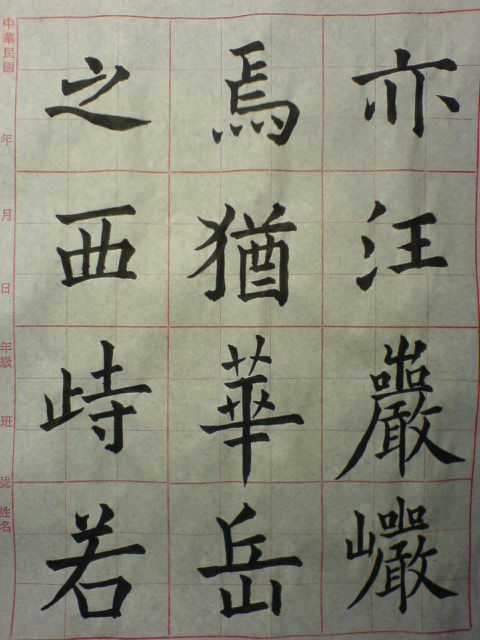 亦汪巖巗
焉猶華岳
之西峙若
中華民國 年 月 日 年級 班 號 姓名